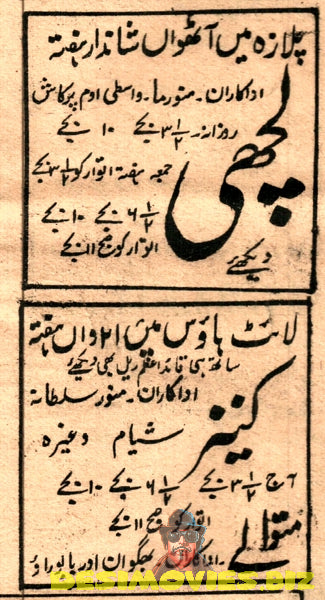 پلازہ میں آٹھواں شاندار ہفتہ
اداکاران۔ منورما۔ واسطی اوم پرکاش
لچھی
روزانہ ۳½ بجے ۱۰ بجے
جمعہ ہفتہ اتوار کو ۳½ بجے
۶½ بجے ۱۰ بجے
اتوار کو صبح ۱۱ بجے
دیکھئے
لائٹ ہاؤس میں ۲۱ واں ہفتہ
ساتھ ہی قائد اعظم ریل بھی دیکھئے
اداکاران۔ منور سلطانہ
کنیز
شیام وغیرہ
آج ۳½ بجے ۶½ بجے ۱۰ بجے
اتوار کو صبح ۱۱ بجے
متوالے
اداکاران بھگوان اور بابوراؤ
DESIMOVIES.BIZ